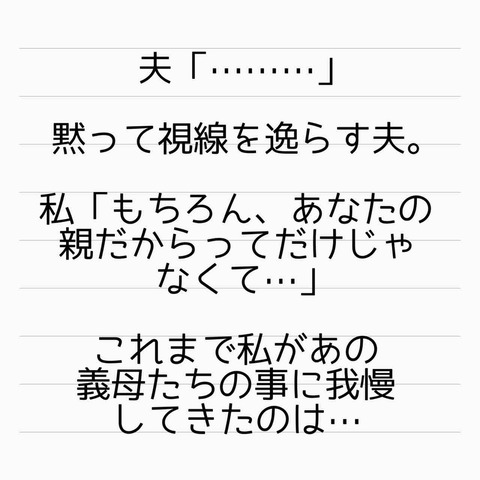 夫「………」
黙って視線を逸らす夫。
私「もちろん、あなたの
親だからってだけじゃ
なくて…」
これまで私があの
義母たちの事に我慢
してきたのは…